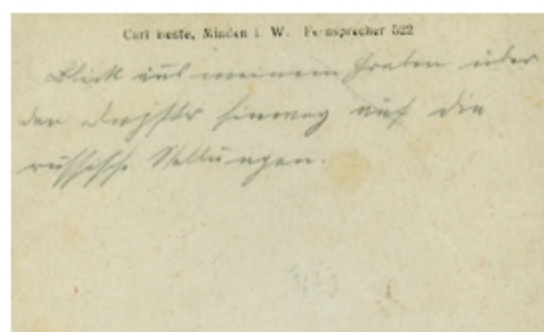 Carl Beste, Minden i. W. Fernsprecher 522
Blick aus meinem Graben über
den Dnjestr hinweg auf die
russische Stellungen.